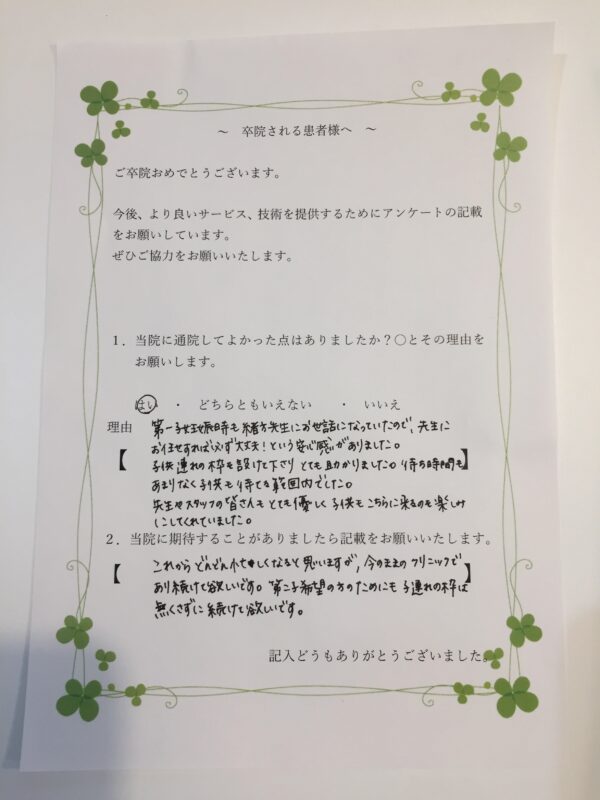 ～ 卒院される患者様へ ～
ご卒院おめでとうございます。
今後、より良いサービス、技術を提供するためにアンケートの記載
をお願いしています。
ぜひご協力をお願いいたします。
1．当院に通院してよかった点はありましたか？○とその理由を
お願いします。
はい ・ どちらともいえない ・ いいえ
理由 第一子妊娠時も緒方先生にお世話になっていたので、先生に
お任せすれば必ず大丈夫！という安心感がありました。
【子供連れの枠も設けて下さりとても助かりました。待ち時間も】
あまりなく子供も待てる範囲内でした。
先生やスタッフの皆さんもとても優しく子供もこちらに来るのも楽しみ
にしてくれていました。
2．当院に期待することがありましたら記載をお願いいたします。
【これからどんどん忙しくなると思いますが、今のままのクリニックで】
あり続けて欲しいです。第二子希望の方のためにも子連れの枠は
無くさずに続けて欲しいです。
記入どうもありがとうございました。